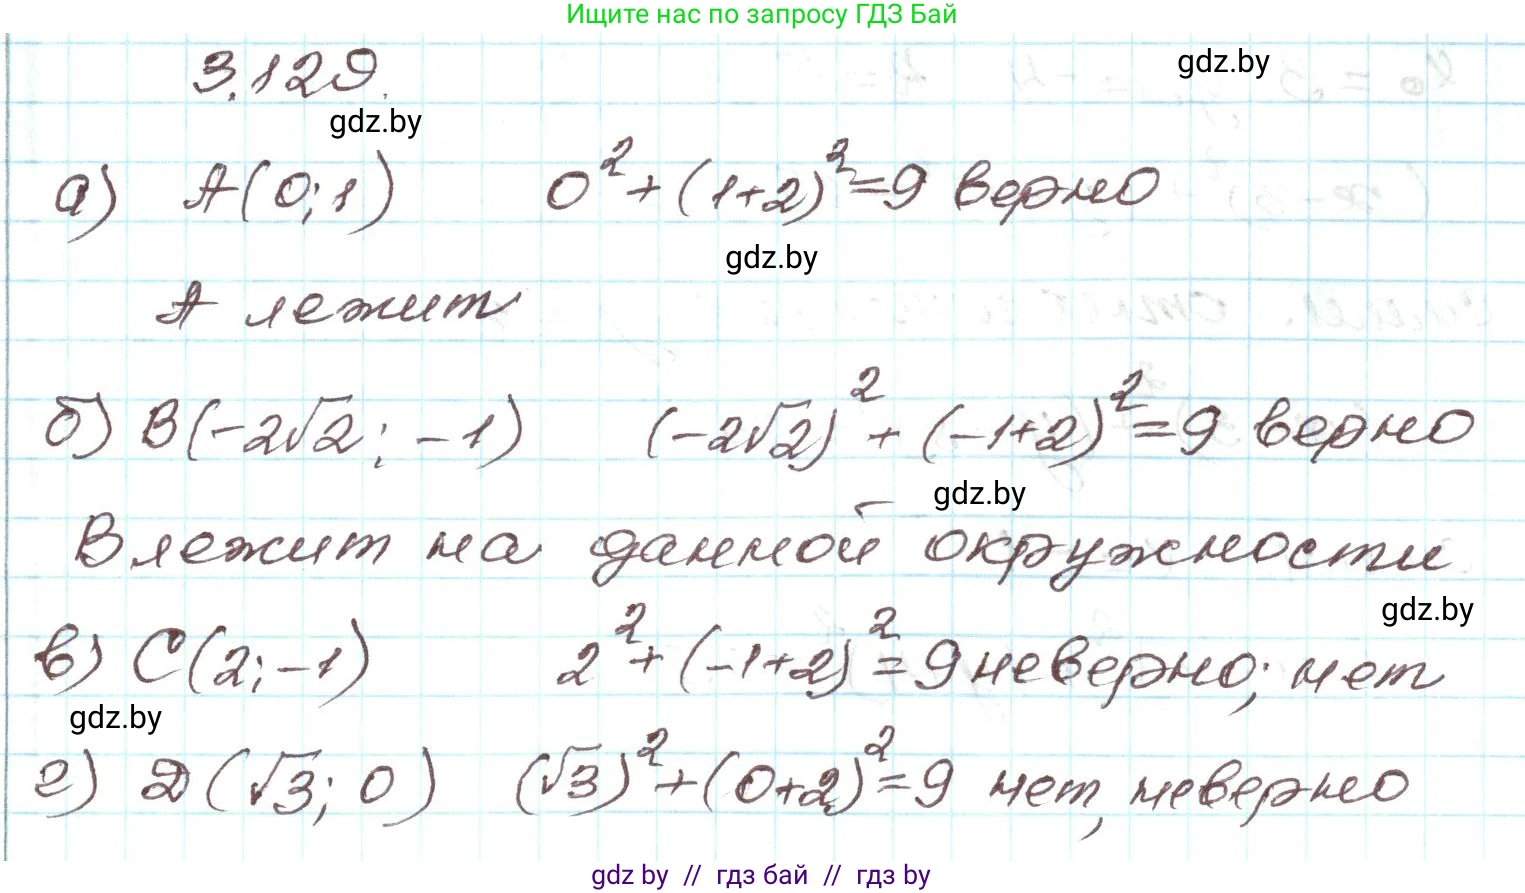 Ищите нас по запросу ГДЗ Бай
3.129.
gdz.by
gdz.by
а) A(0;1) 0²+(1+2)²=9 верно
gdz.by
A лежит
б) B(-2√2; -1) (-2√2)²+(-1+2)²=9 верно
gdz.by
B лежит на данной окружности
gdz.by
в) C(2;-1) 2²+(-1+2)²=9 неверно; нет
gdz.by
г) D(√3; 0) (√3)²+(0+2)²=9 нет, неверно
gdz by // гдз бай // гдз by